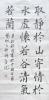 取静於山寄情於
水虚懷若谷清氣
若蘭